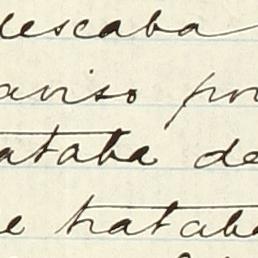 descaba
aviso por
ataba de
e trataba